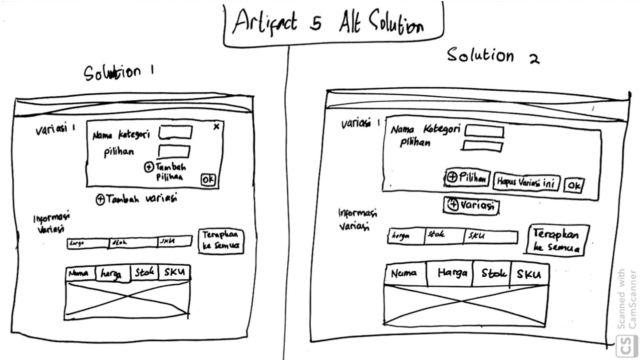 Artifact 5 Alt Solution
Solution 1
Variasi 1
Nama kategori
x
pilihan
+ Tambah
Pilihan
OK
+ Tambah variasi
Informasi
Variasi
harga Stok SKU
Terapkan
ke Semua
Nama harga Stok SKU
Solution 2
Variasi 1
Nama Kategori
pilihan
+ Pilihan
Hapus Variasi ini
OK
+ Variasi
Informasi
Variasi
harga Stok SKU
Terapkan
ke Semua
Nama Harga Stok SKU
CS
Scanned with
CamScanner